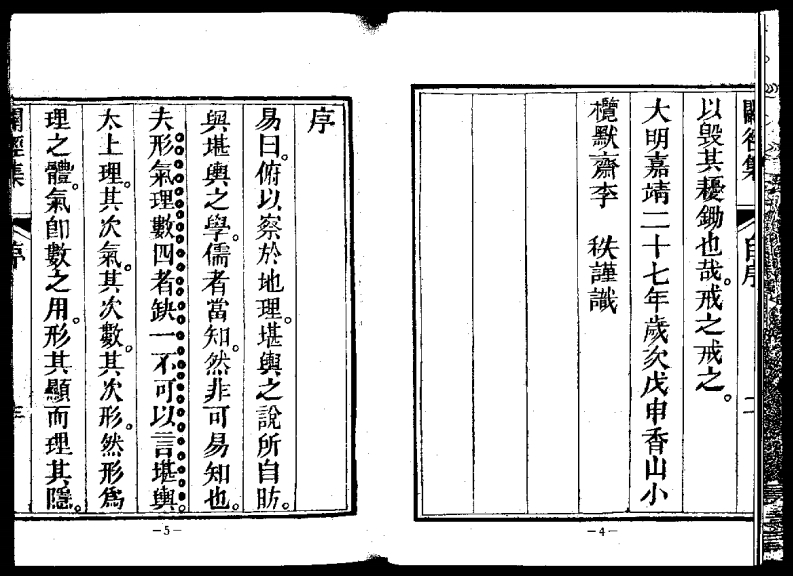 以毁其耰鋤也哉。戒之戒之。
大明嘉靖二十七年歲次戊申香山小
欖默齋李　秩謹識
自序
二
—4—
序
易曰。俯以察於地理。堪輿之說所自昉。
與堪輿之學。儒者當知。然非可易知也。
夫形氣理數四者缺一不可以言堪輿。
太上理。其次氣。其次數。其次形。然形爲
理之體。氣卽數之用。形其顯而理其隱。
序
—5—